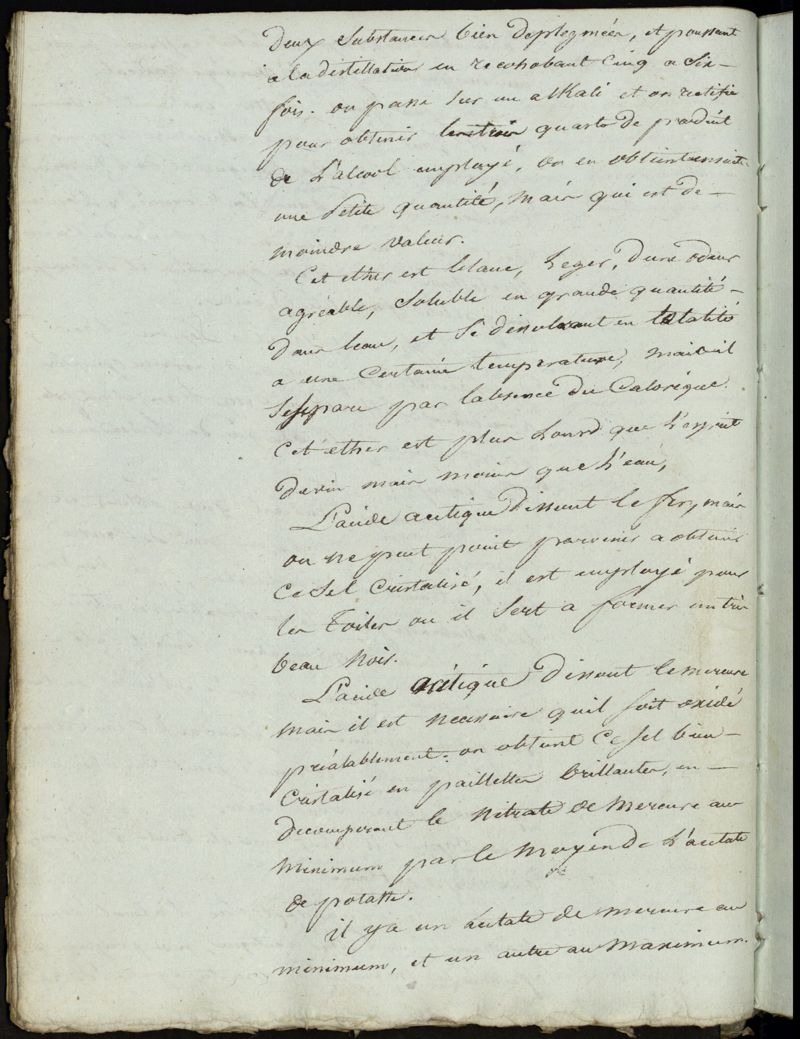 Deux Substances bien deplegmées, et poussant
a la distillation en recohobant Cinq a Six
fois. on passe sur un alkali et on rectifie
pour obtenir les trois quarts de produit
de L'alcool employé, on en obtient ensuite
une Petite quantité, mais qui est de
moindre valeur.
Cet ether est blanc, Leger, d'une odeur
agréable, Soluble en grande quantité
dans leau, et Se dissolvant en totalité
a une Certaine temperature, mais il
Se separe par labsence du Calorique.
Cet ether est plus Lourd que L'esprit
de vin mais moins que L'eau,
L'acide acetique dissout le fer, mais
on ne peut point parvenir a obtenir
Ce Sel Cristalisé, il est employé pour
les Toiles ou il Sert a former un très
beau Noir.
L'acide acétique Dissout le mercure
mais il est necessaire quil soit oxidé
préalablement. on obtient Ce Sel bien
Cristalisé en paillettes brillantes, en
decomposant le Nitrate de Mercure au
Minimum par le Moyen de L'acetate
de potasse.
il y a un Acetate de mercure au
minimum, et un autre au Maximum.